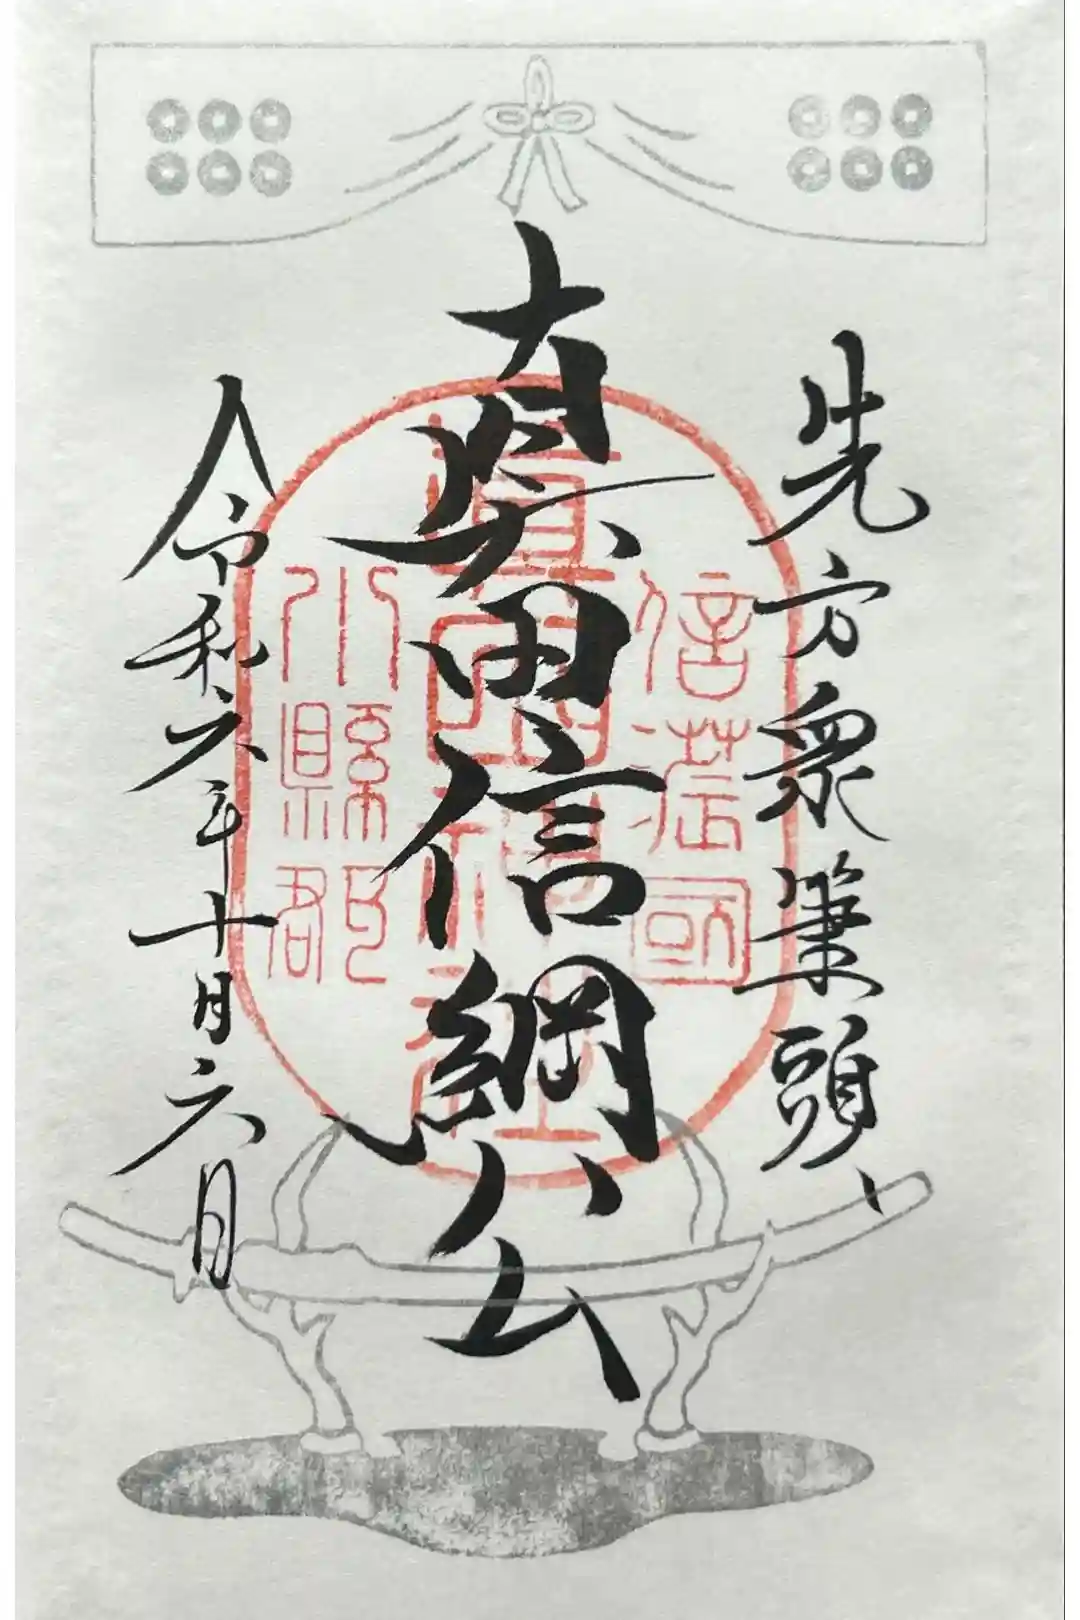 先方衆筆頭、
眞田信綱公
令和六年十月六日
信濃國
眞田神社
小縣郡